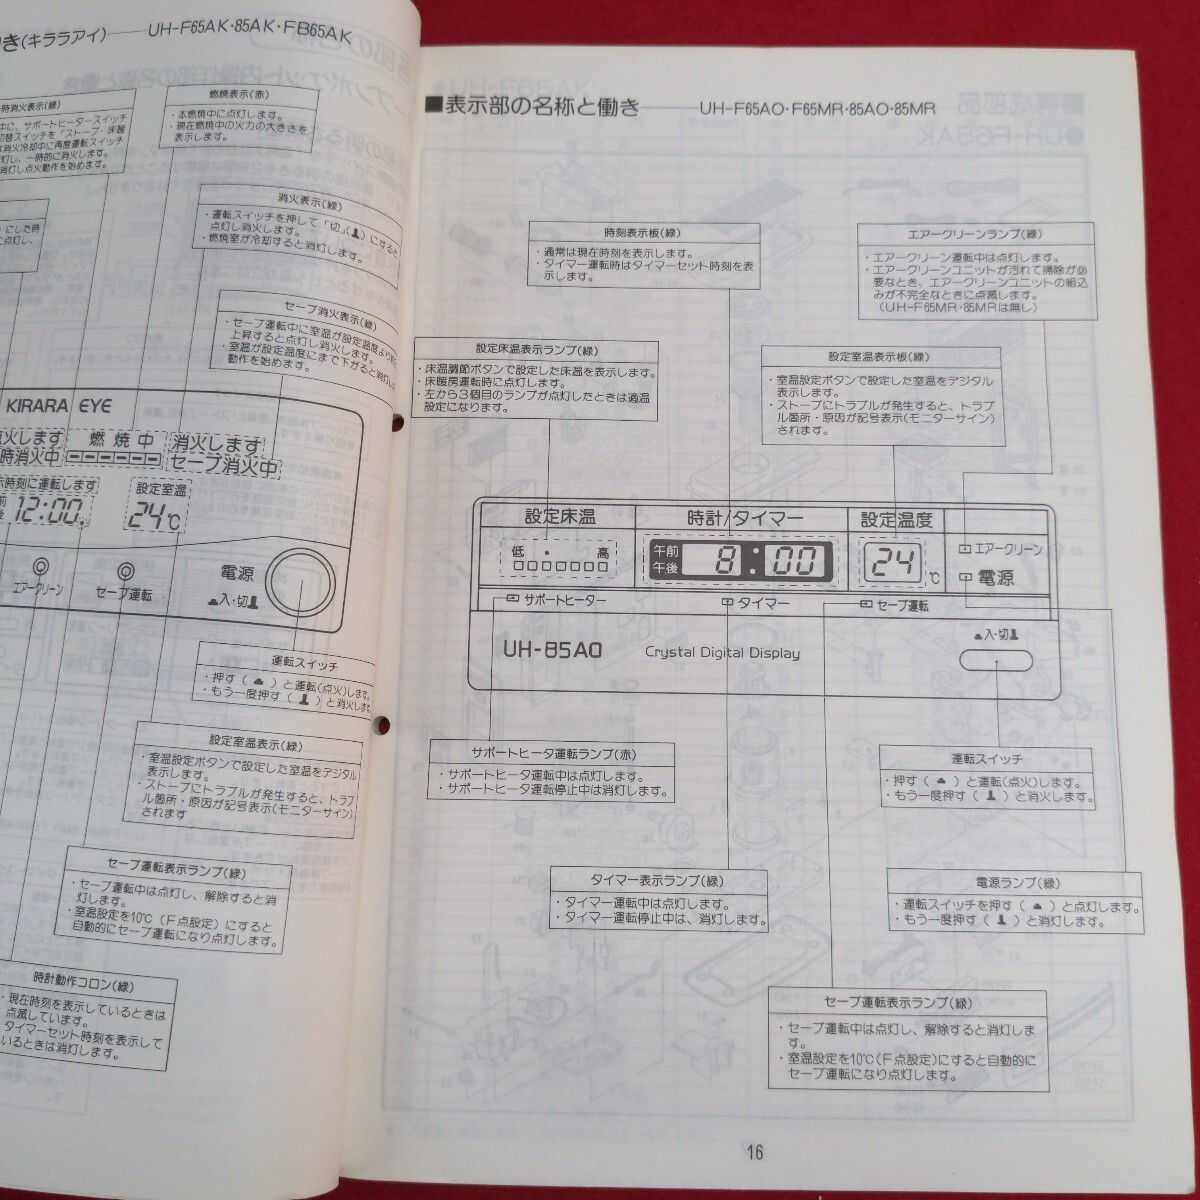 き(キララアイ)――UH-F65AK・85AK・FB65AK
時消火表示(緑)
中に、サポートヒータースイッチ
切替スイッチを「ストーブ・床暖
は消火冷却中に再度運転スイッチ
灯し、一時的に消火します。
消灯し点火動作を始めます。
燃焼表示(赤)
・本燃焼中に点灯します。
・現在燃焼中の火力の大きさを
表示します。
にした時
に点灯し、
消火表示(緑)
・運転スイッチを押して「切」にすると
点灯し消火します。
・燃焼室が冷却すると消灯します。
セーブ消火表示(緑)
・セーブ運転中に室温が設定温度より
上昇すると点灯し消火します。
・室温が設定温度にまで下がると消灯し
動作を始めます。
KIRARA EYE
点火します
燃焼中
消火します
時消火中
セーブ消火中
示時刻に運転します
設定室温
前
後
12:00
24℃
エアークリーン
セーブ運転
電源
入・切
運転スイッチ
・押す( )と運転(点火)します。
・もう一度押す( )と消火します。
設定室温表示(緑)
・室温設定ボタンで設定した室温をデジタル
表示します。
・ストーブにトラブルが発生すると、トラブ
ル箇所・原因が記号表示(モニターサイン)
されます
セーブ運転表示ランプ(緑)
・セーブ運転中は点灯し、解除すると消
灯します。
・室温設定を10℃(F点設定)にすると
自動的にセーブ運転になり点灯します。
時計動作コロン(緑)
・現在時刻を表示しているときは
点滅しています。
タイマーセット時刻を表示して
いるときは消灯します。
■表示部の名称と働き――UH-F65AO・F65MR・85AO・85MR
時刻表示板(緑)
・通常は現在時刻を表示します。
・タイマー運転時はタイマーセット時刻を表
示します。
エアークリーンランプ(緑)
・エアークリーン運転中は点灯します。
・エアークリーンユニットが汚れて掃除が必
要なとき、エアークリーンユニットの組込
みが不完全なときに点滅します。
(UH-F65MR・85MRは無し)
設定床温表示ランプ(緑)
・床温調節ボタンで設定した床温を表示します。
・床暖房運転時に点灯します。
・左から3個目のランプが点灯したときは適温
設定になります。
設定室温表示板(緑)
・室温設定ボタンで設定した室温をデジタル
表示します。
・ストーブにトラブルが発生すると、トラブ
ル箇所・原因が記号表示(モニターサイン)
されます。
設定床温
時計/タイマー
設定温度
低 ・ 高
午前
午後
8:00
24℃
エアークリーン
電源
サポートヒーター
タイマー
セーブ運転
UH-85AO
Crystal Digital Display
入・切
サポートヒータ運転ランプ(赤)
・サポートヒータ運転中は点灯します。
・サポートヒータ運転停止中は消灯します。
運転スイッチ
・押す( )と運転(点火)します。
・もう一度押す( )と消火します。
タイマー表示ランプ(緑)
・タイマー運転中は点灯します。
・タイマー運転停止中は、消灯します。
電源ランプ(緑)
・運転スイッチを押す( )と点灯します。
・もう一度押す( )と消灯します。
セーブ運転表示ランプ(緑)
・セーブ運転中は点灯し、解除すると消灯しま
す。
・室温設定を10℃(F点設定)にすると自動的に
セーブ運転になり点灯します。
16